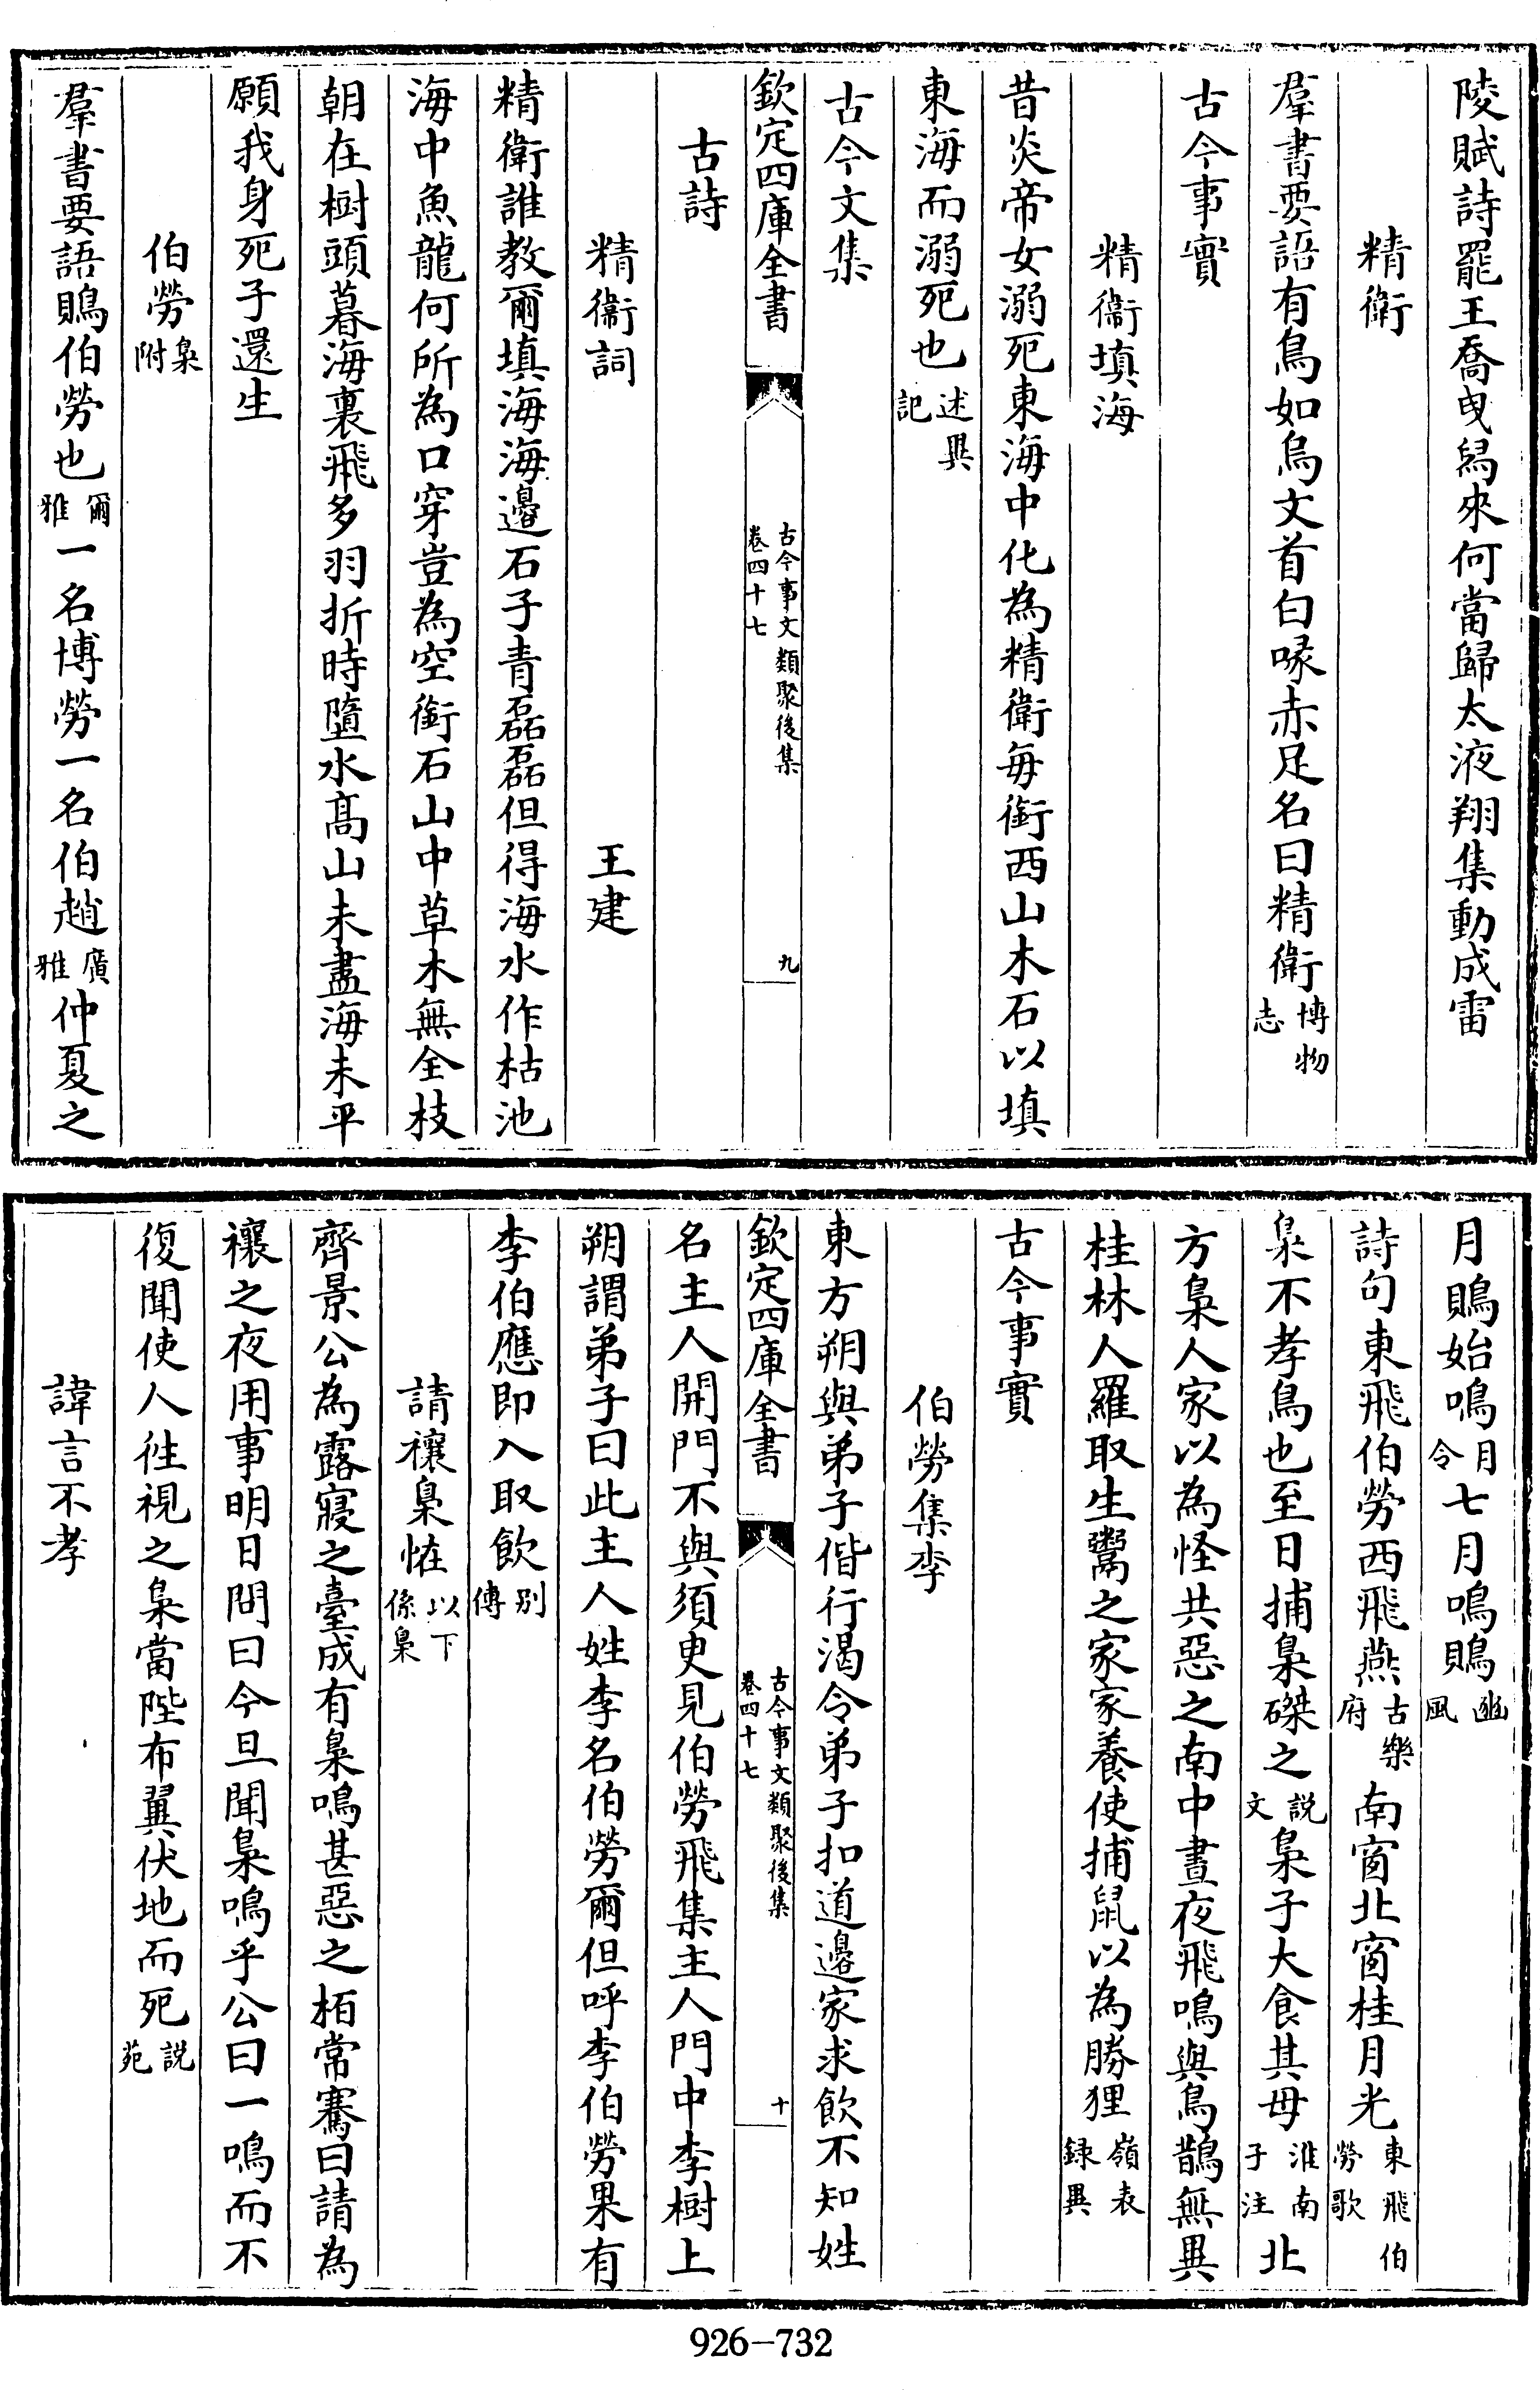 陵賦詩罷王喬曳舄來何當歸太液翔集動成雷
精衛
羣書要語有鳥如烏文首白喙赤足名曰精衛博物志
古今事實
精衞填海
昔炎帝女溺死東海中化為精衛每銜西山木石以填
東海而溺死也述異記
古今文集
欽定四庫全書
古今事文類聚後集
卷四十七
九
古詩
精衞詞 王建
精衛誰教爾填海海邊石子青磊磊但得海水作枯池
海中魚龍何所為口穿豈為空銜石山中草木無全枝
朝在樹頭暮海裏飛多羽折時墮水髙山未盡海未平
願我身死子還生
伯勞梟附
羣書要語鵙伯勞也爾雅一名博勞一名伯趙廣雅仲夏之
月鵙始鳴月令七月鳴鵙豳風
詩句東飛伯勞西飛燕古樂府南窗北窗桂月光東飛伯勞歌
梟不孝鳥也至日捕梟磔之説文梟子大食其母淮南子注北
方梟人家以為怪共惡之南中晝夜飛鳴與鳥鵲無異
桂林人羅取生鬻之家家養使捕鼠以為勝狸嶺表録異
古今事實
伯勞集李
東方朔與弟子偕行渴令弟子扣道邊家求飲不知姓
欽定四庫全書
古今事文類聚後集
卷四十七
十
名主人開門不與須臾見伯勞飛集主人門中李樹上
朔謂弟子曰此主人姓李名伯勞爾但呼李伯勞果有
李伯應即入取飲別傳
請禳梟恠以下係梟
齊景公為露寢之臺成有梟鳴甚惡之栢常騫曰請為
禳之夜用事明日問曰今旦聞梟鳴乎公曰一鳴而不
復聞使人往視之梟當陛布翼伏地而死説苑
諱言不孝
926-732